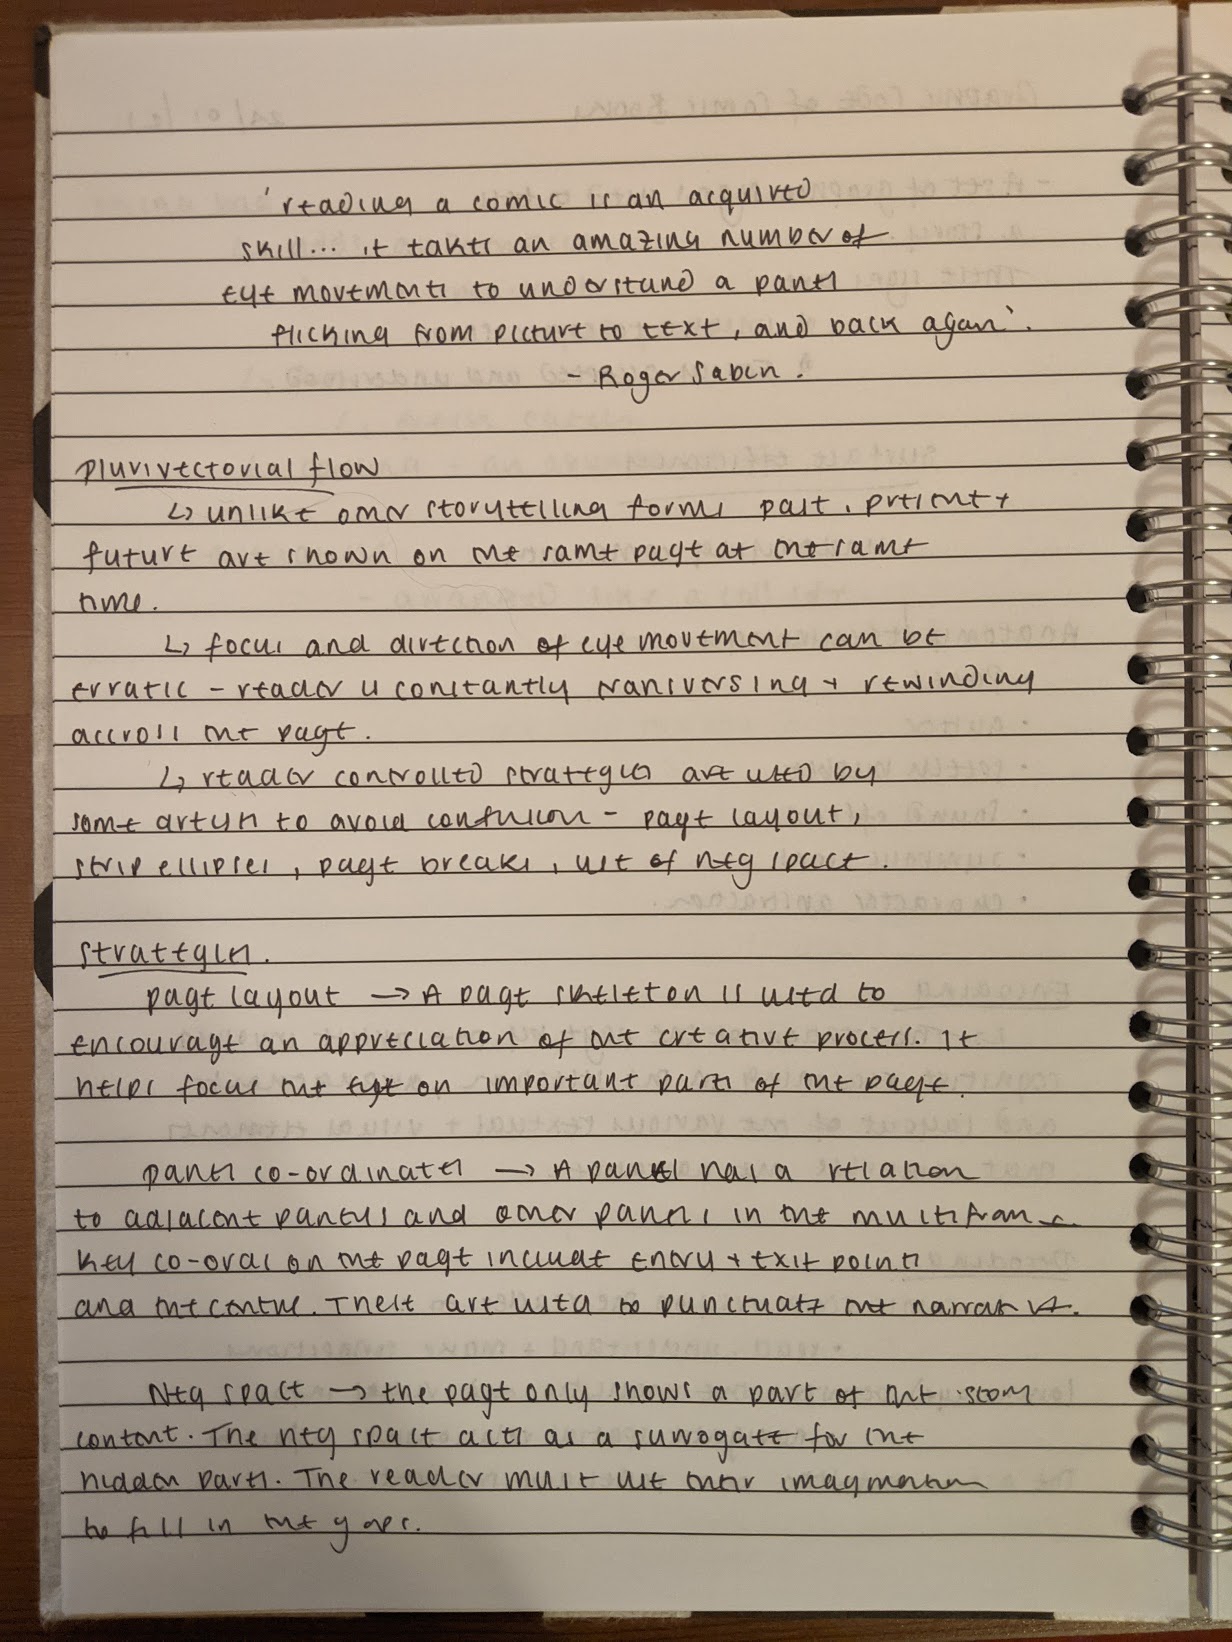 'reading a comic is an acquired
skill... it takes an amazing number of
eye movements to understand a panel
flicking from picture to text, and back again'.
- Roger Sabin.
plurivectorial flow
↳ unlike other storytelling forms past, present +
future are shown on the same page at the same
time.
↳ focus and direction of eye movement can be
erratic - reader is constantly transversing + rewinding
accross the page.
↳ reader controlled strategies are used by
some artists to avoid confusion - page layout,
strip ellipses, page breaks, use of neg space.
strategies.
page layout → A page skeleton is used to
encourage an appreciation of the creative process. It
helps focus the eye on important parts of the page.
panel co-ordinates → A panel has a relation
to adjacent panels and other panels in the multiframe.
Key co-ords on the page include entry + exit points
and the centre. These are used to punctuate the narrative.
Neg space → the page only shows a part of the story
content. The neg space acts as a surrogate for the
hidden parts. The reader must use their imagination
to fill in the gaps.